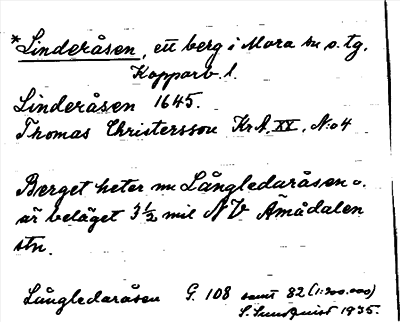 *Linderåsen, ett berg i Mora sn o. tg.
Kopparb. l.
Linderåsen 1645.
Thomas Christersson KrA XX, N:o 4
Berget heter nu Långledaråsen o.
är beläget 3 1/2 mil NV Åmådalen
stn.
Långledaråsen G. 108 samt 82 (1:200.000)
S. Sundquist 1935.